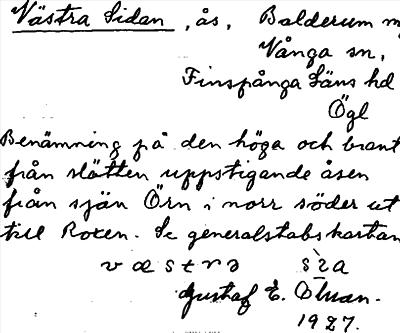 Västra Sidan, ås, Balderum m
Vånga sn,
Finspånga läns hd
Ögl
Benämning på den höga och brant
från slätten uppstigande åsen
från sjön Örn i norr söder ut
till Roxen. Se generalstabskartan
Gustaf E.
1927.